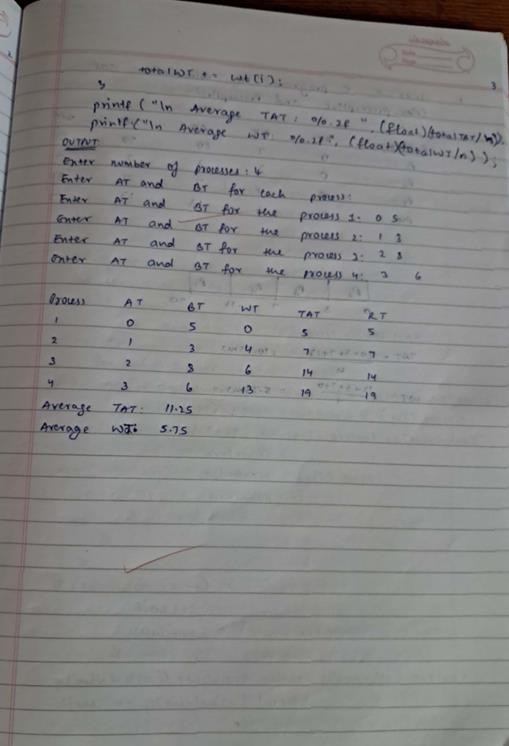 3
totalWT += wt[i];
}
printf ("\n Average TAT: %0.2f ", (float)(totalTAT/n));
printf ("\n Average WT: %0.2f", (float)(totalWT/n));
OUTPUT
Enter number of processes: 4
Enter AT and BT for each process:
Enter AT and BT for the process 1: 0 5
Enter AT and BT for the process 2: 1 3
Enter AT and BT for the process 3: 2 8
Enter AT and BT for the process 4: 3 6
Process AT BT WT TAT RT
1 0 5 0 5 5
2 1 3 4 7 7
3 2 8 6 14 14
4 3 6 13 19 19
Average TAT: 11.25
Average WT: 5.75